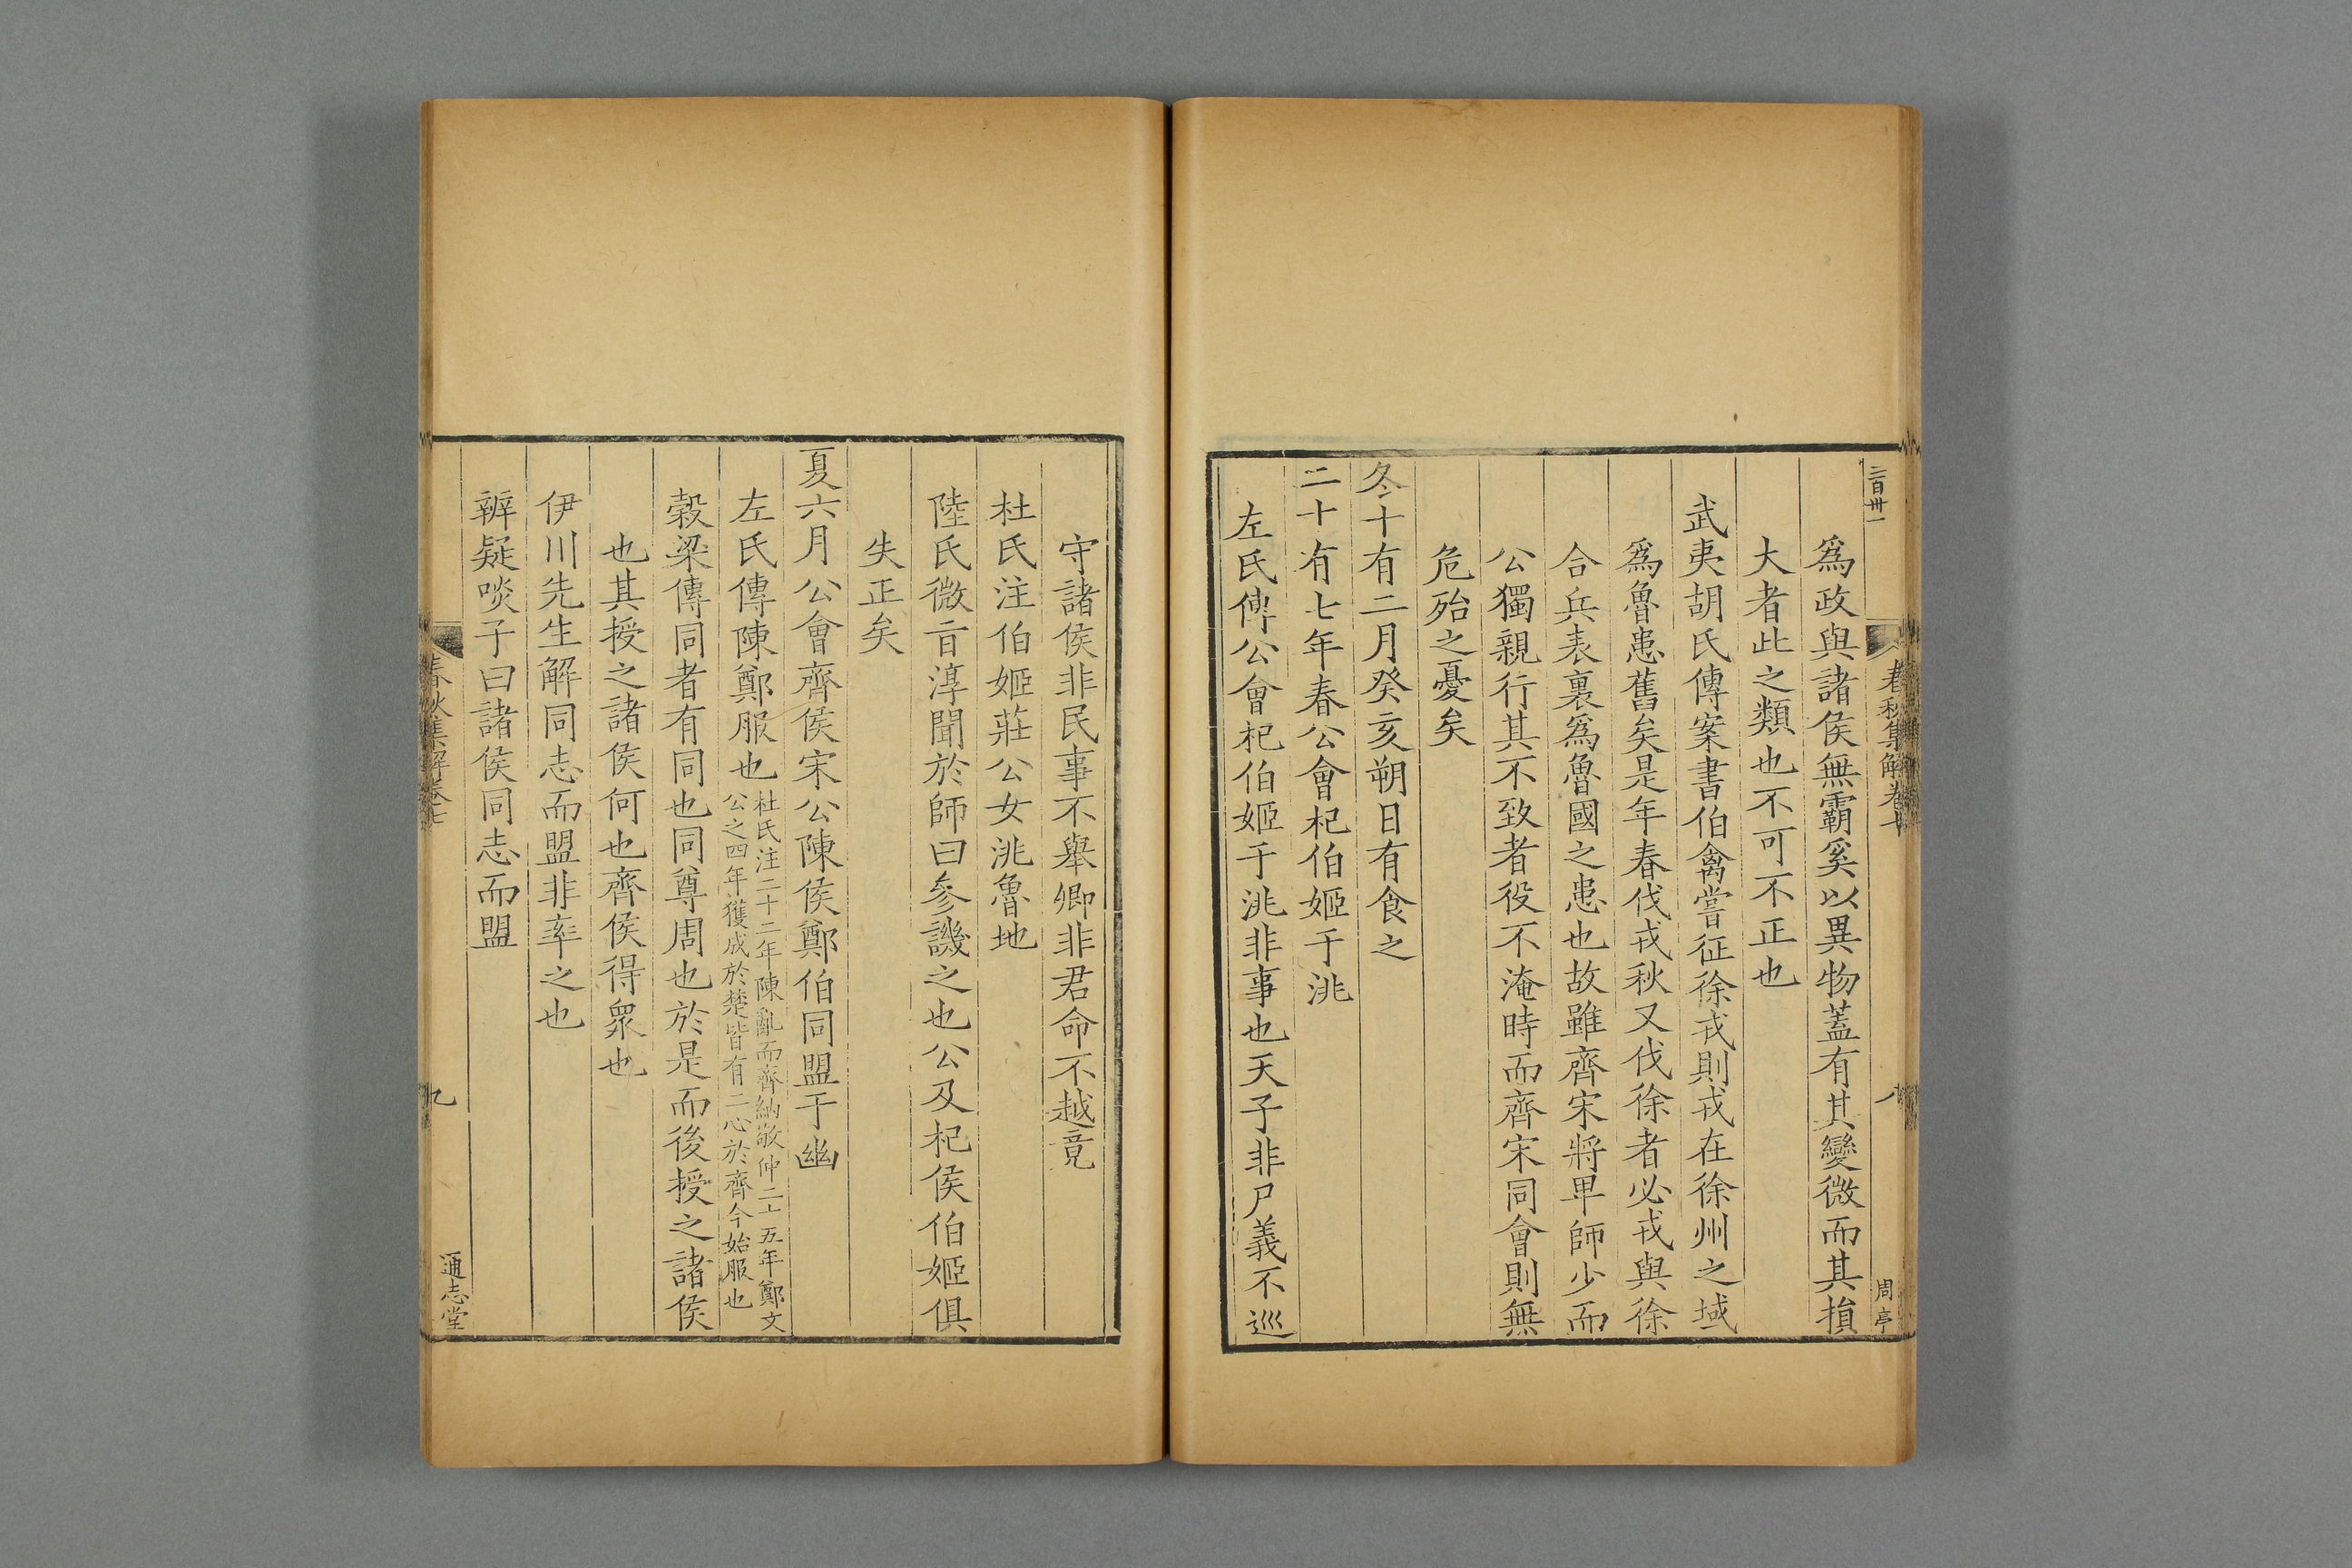 二百卅一
春秋集解卷七
八
周亭
爲政與諸侯無霸奚以異物蓋有其變微而其損
大者此之類也不可不正也
武夷胡氏傳案書伯禽嘗征徐戎則戎在徐州之域
爲魯患舊矣是年春伐戎秋又伐徐者必戎與徐
合兵表裏爲魯國之患也故雖齊宋將卑師少而
公獨親行其不致者役不淹時而齊宋同會則無
危殆之憂矣
冬十有二月癸亥朔日有食之
二十有七年春公會杞伯姬于洮
左氏傳公會杞伯姬于洮非事也天子非尸義不巡
守諸侯非民事不舉卿非君命不越竟
杜氏注伯姬莊公女洮魯地
陸氏微旨淳聞於師曰參譏之也公及杞侯伯姬俱
失正矣
夏六月公會齊侯宋公陳侯鄭伯同盟于幽
左氏傳陳鄭服也杜氏注二十二年陳亂而齊納敬仲二十五年鄭文
公之四年獲成於楚皆有二心於齊今始服也
榖梁傳同者有同也同尊周也於是而後授之諸侯
也其授之諸侯何也齊侯得衆也
伊川先生解同志而盟非率之也
辨疑啖子曰諸侯同志而盟
春秋集解卷七
九
通志堂